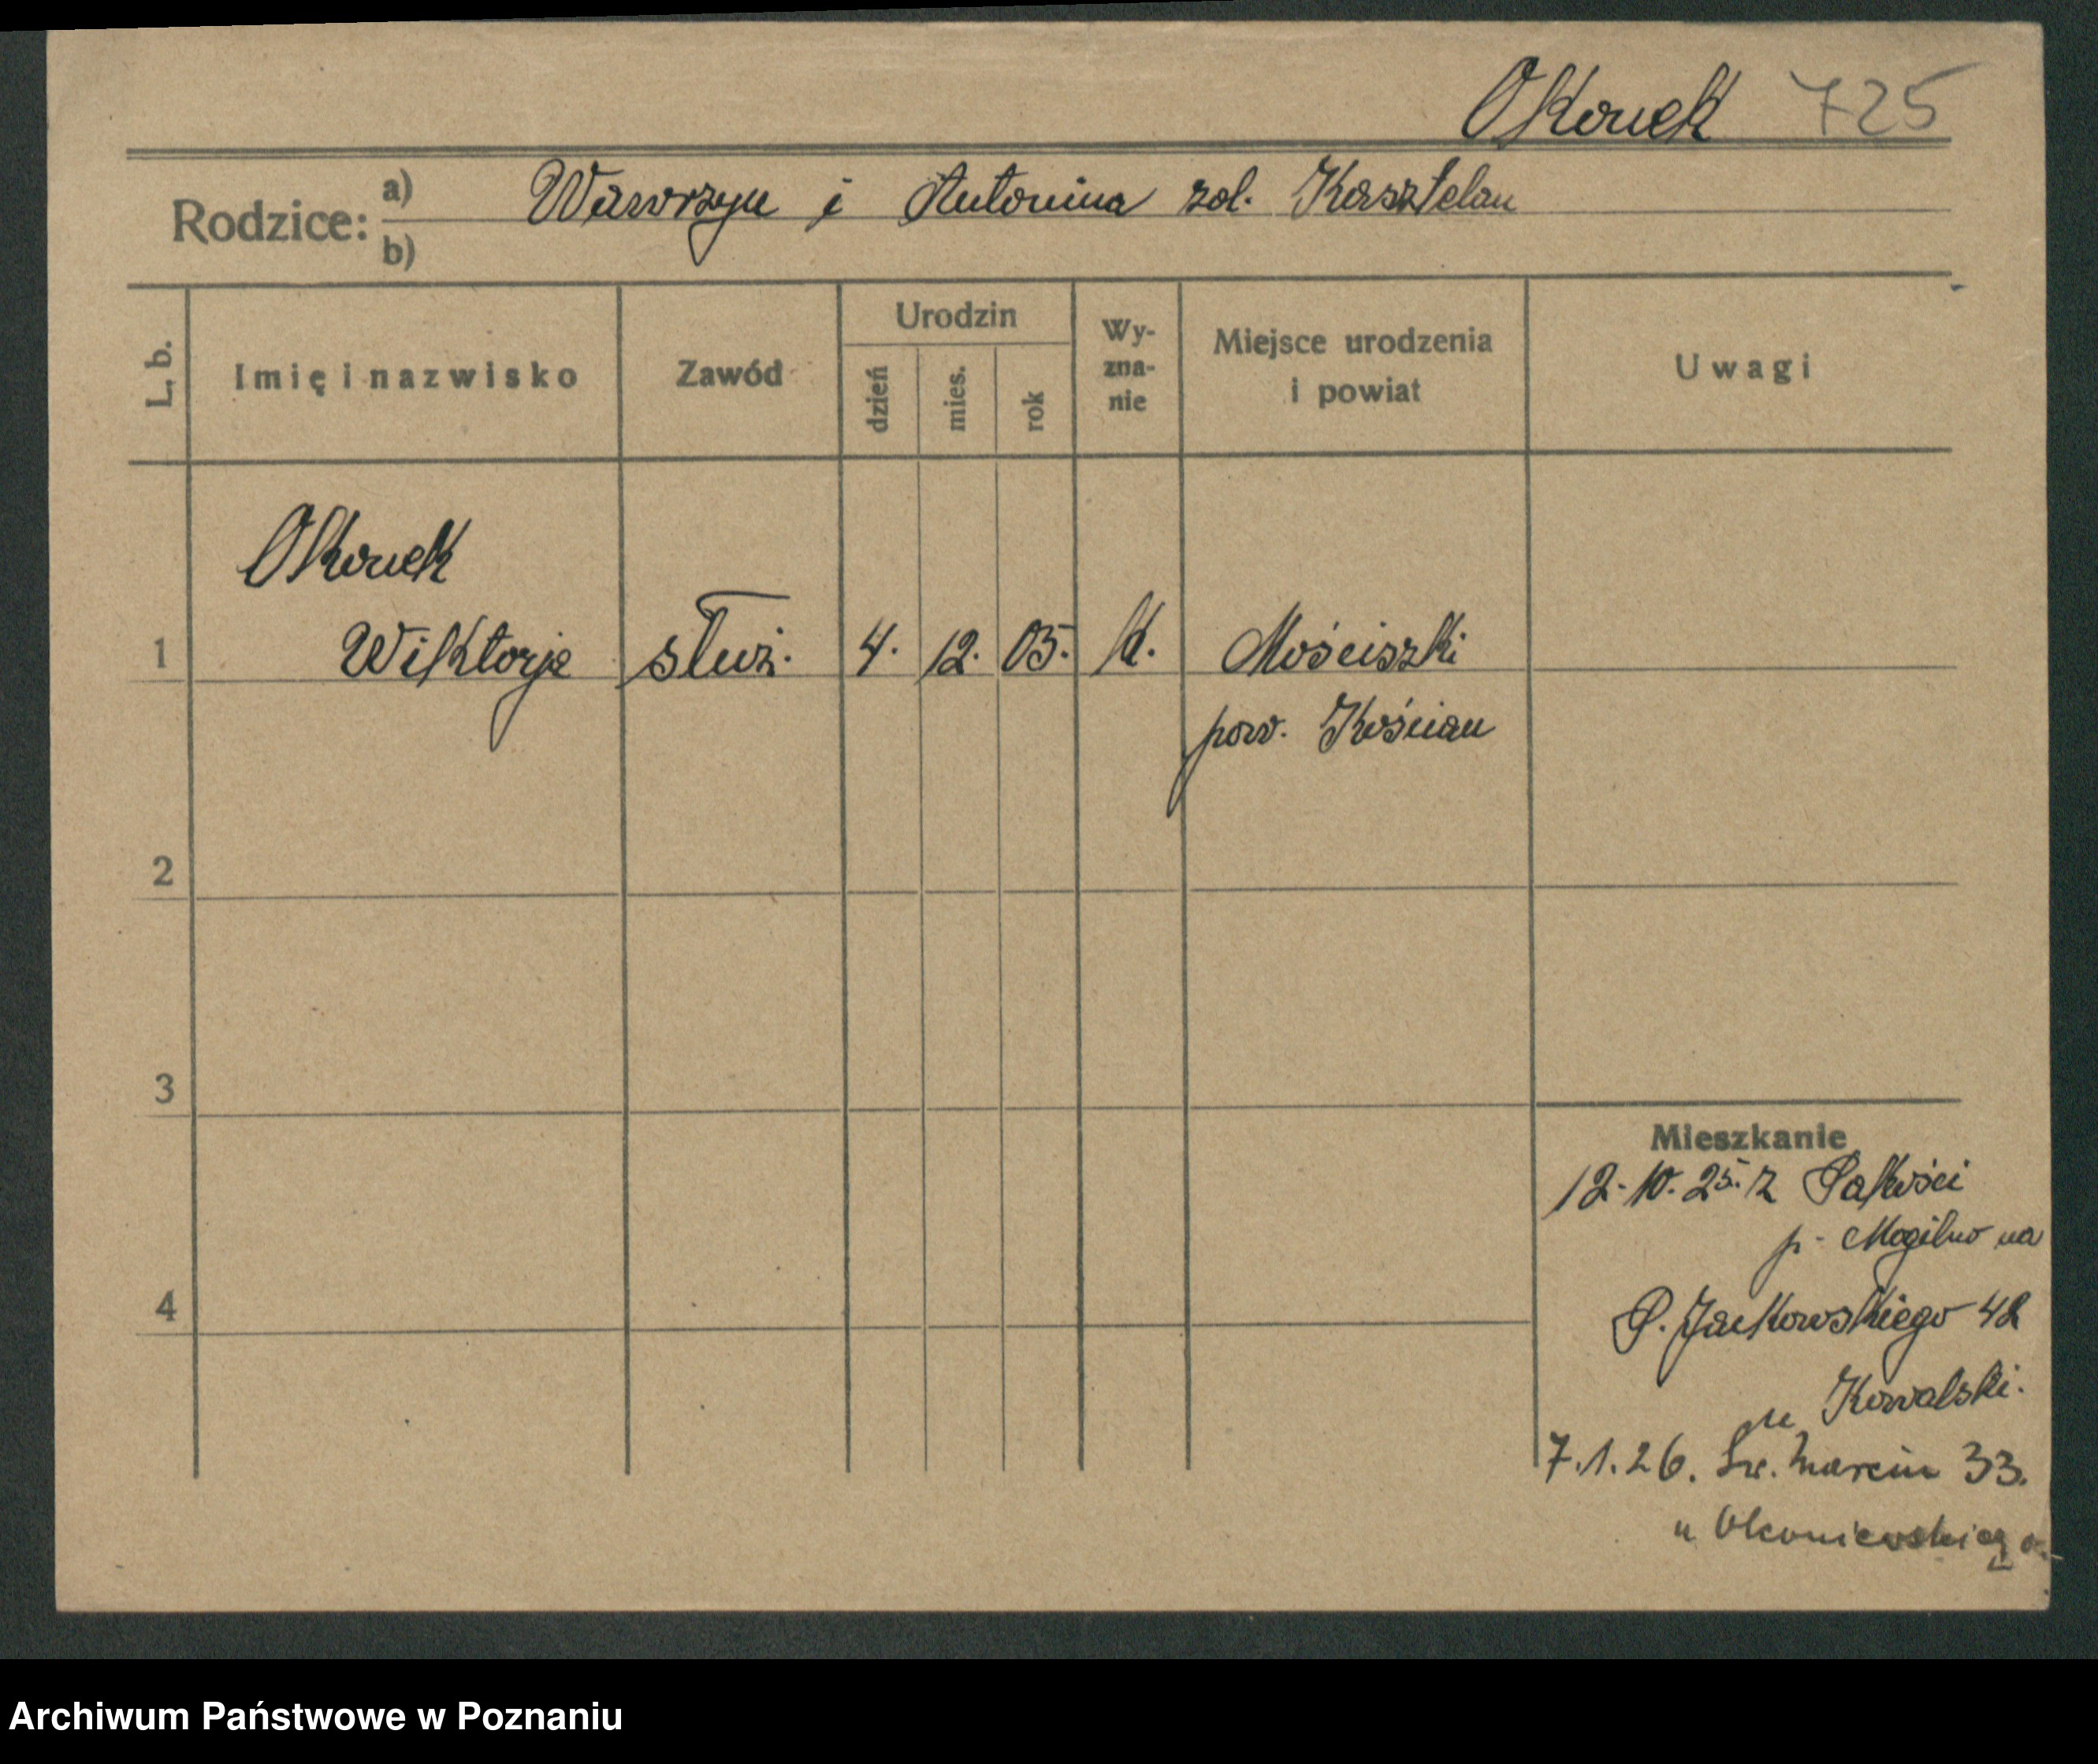 Okonek 725
Rodzice: a) Wawrzyn i Antonina zol. Kasztelan
b)
L. b. Imię i nazwisko Zawód Urodzin dzień mies. rok Wy-zna-nie Miejsce urodzenia i powiat Uwagi
Okonek
1 Wiktorja służ. 4. 12. 05. k. Mościszki
pow. Kościan
2
3
Mieszkanie
12.10.25. z Pakości
p. Mogilno na
4 P. Jackowskiego 42
u Kowalski.
7.1.26. Św. Marcin 33.
u Okoniewskiego
Archiwum Państwowe w Poznaniu